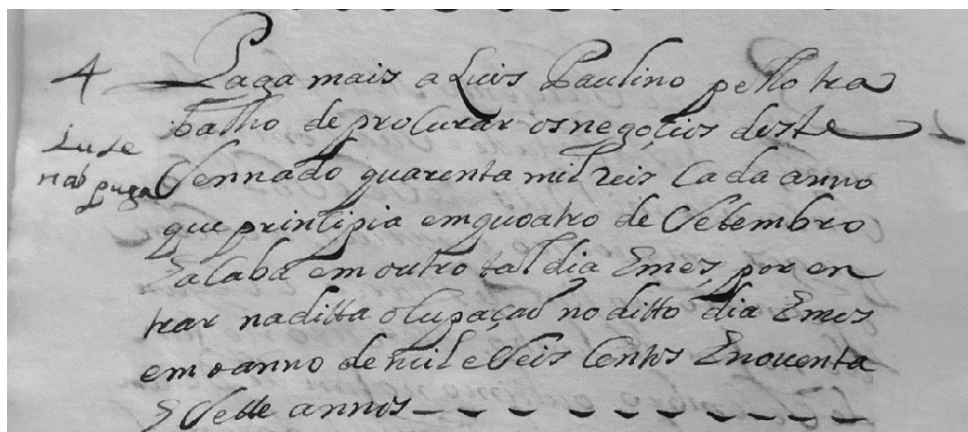 4 Paga mais a Luis Paulino pello tra
balho de procurar os negoçios deste
Sennado quarenta mil reis Cada anno
que prinçipia em quoatro de Setembro
E acaba em outro tal dia Emes, por en
trar na ditta ocupaçaõ no ditto dia Emes
em o anno de mil e Seis Centos Enoventa
E Sette annos
naõ paga